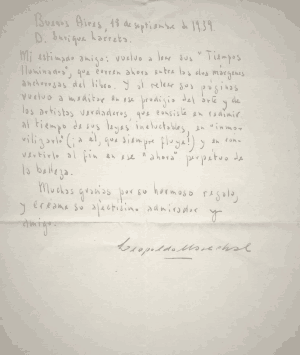 Buenos Aires, 18 de septiembre de 1939.
D. Enrique Larreta.
Mi estimado amigo: vuelvo a leer sus "Tiempos
Iluminados", que corren ahora entre las dos márgenes
anchurosas del libro. Y al releer sus páginas
vuelvo a meditar en ese prodigio del arte y de
los artistas verdaderos que consiste en redimir
al tiempo de sus leyes ineluctables, en "inmo-
vilizarlo" (¡a él, que siempre fluye!) y en con-
vertirlo al fin en ese "ahora" perpetuo de
la belleza.
Muchas gracias por su hermoso regalo,
y créame su afectísimo admirador y
amigo.
Leopoldo Marechal